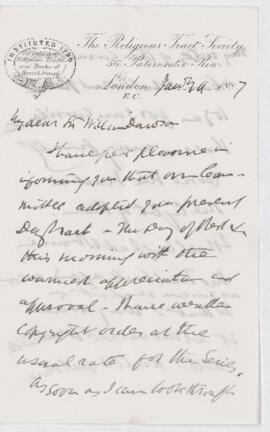 INSTITUTED 1799
The Religious Tract Society
56 Paternoster Row
London Jany 29 1887
E.C.
My dear Sir William Dawson
I have great pleasure in
informing you that our Com-
mittee adopted your present
Day Tract - The Day of Rest &c
this morning with the
warmest appreciation and
approval - I have written
copyright order at the
usual rate for the Series.
As soon as I can look through